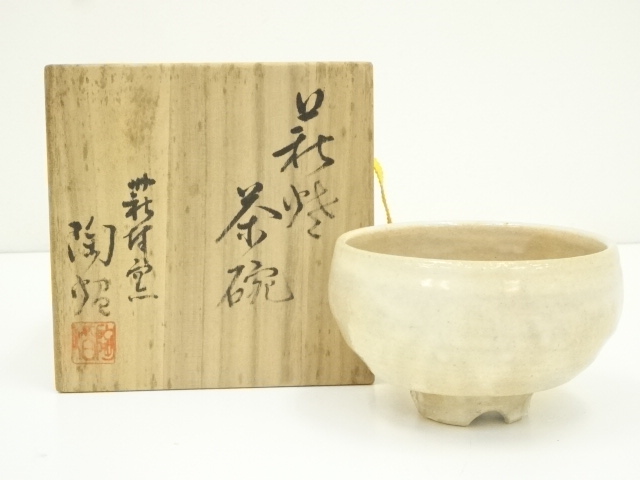 萩焼
茶碗
萩村窯
陶焔